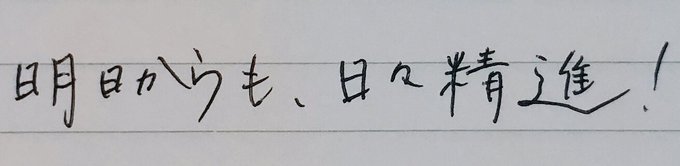 明日からも、日々精進!